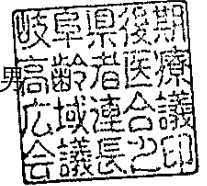 岐阜県後期
高齢者医療
広域連合議
会議長之印
男